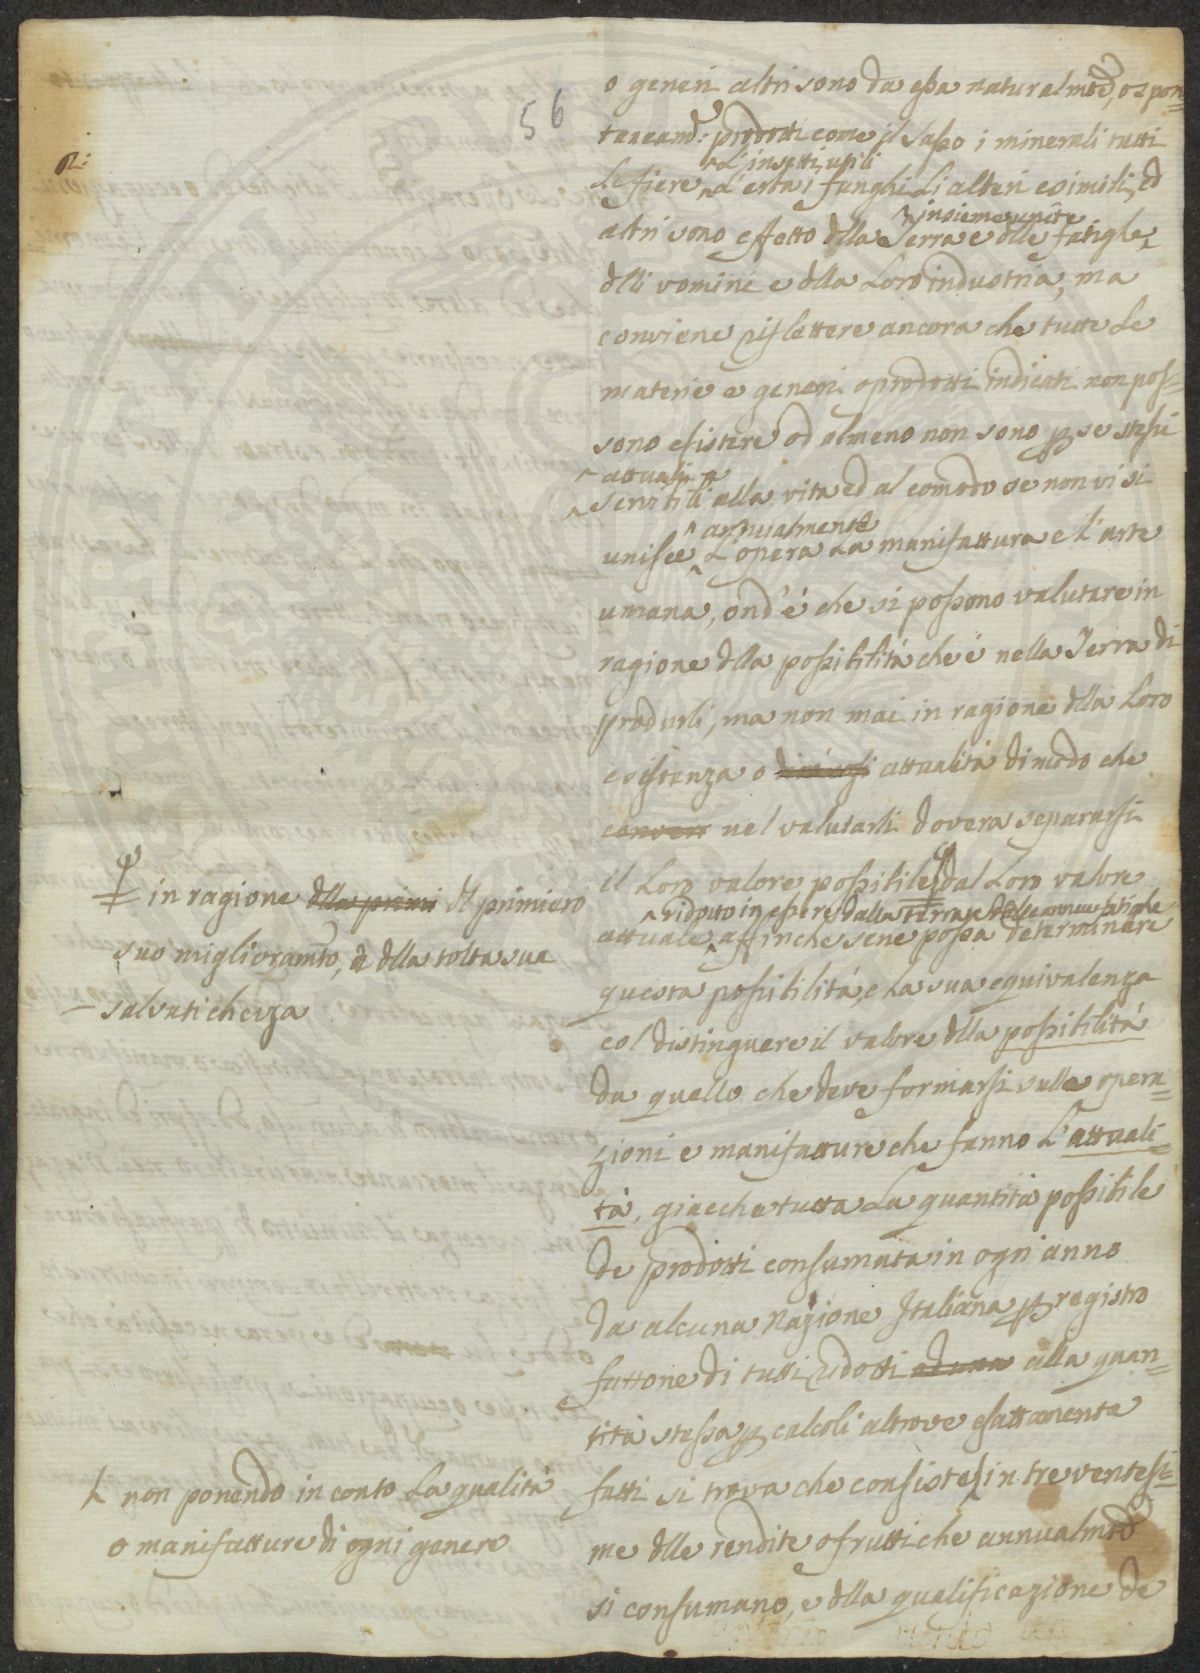 56
o generi altri sono da essa naturalmte, o spon=
taneamte: prodotti come il sasso i minerali tutti
^ l'insetti utili
Le fiere ^ L'erba i funghi Li alberi e simili, ed
insieme unite
altri sono effetto dlla Terra e dlle fatighe
dlli uomini e dlla Loro industria, ma
conviene riflettere ancora che tutte Le
materie e generi o prodotti indicati non pos=
sono esistere od almeno non sono p se stessi
^ attuali e
^ servibili alla vita ed al comodo se non vi si
^ annualmente
unisce ^ L'opera La manifattura e l'arte
umana, ond'é che si possono valutare in
ragione dlla possibilitá che é nella Terra di
produrli, ma non mai in ragione dlla Loro
esistenza o attualitá di modo che
conver nel valutarli dovera separarsi
il Loro valore possibile dal Loro valore
^ ridotto in essere dalla terra e dalle annue fatighe
attuale ^ affinche sene possa determinare
questa possibilitá, e La sua equivalenza
col distinguere il valore dlla possibilitá
da quello che deve formarsi sulle opera=
zioni e manifatture che fanno L'attuali=
tá, giacche tutta La quantitá possibile
de prodotti consumata in ogni anno
da alcuna Nazione Italiana p registro
fattone di tutti ridotti ad una alla quan=
titá stessa p calcoli altrove esattamente
fatti si trova che consiste in tre ventesi=
me dlle rendite o frutti che annualmte
si consumano, e dlla qualificazione de
in ragione dlla primi dl primiero
suo miglioramto, e dlla tolta sua
salvatichezza
non ponendo in conto La qualitá
o manifatture di ogni genere